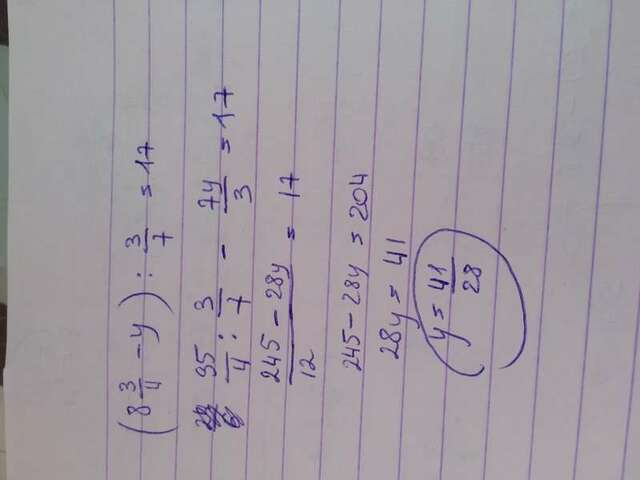 (8 3/4 - y) : 3/7 = 17
35/4 : 3/7 - 7y/3 = 17
245 - 28y/12 = 17
245 - 28y = 204
28y = 41
y = 41/28